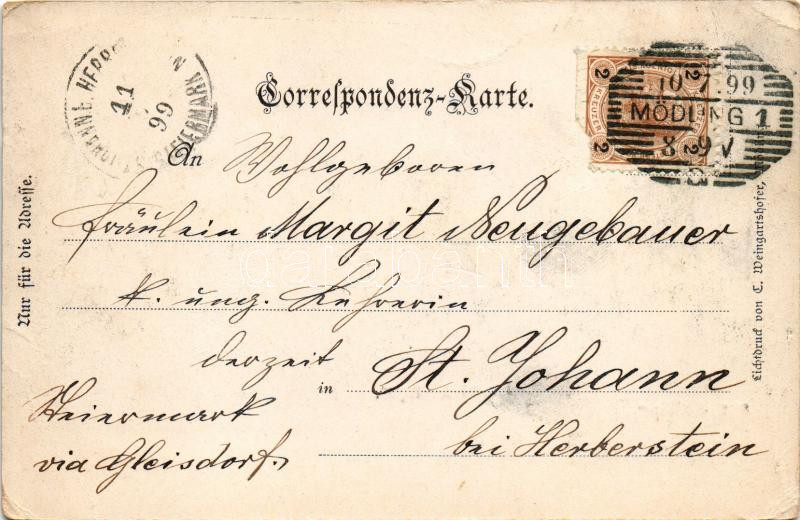 Correspondenz-Karte.
An Wohlgeboren
Fräulein Margit Neugebauer
k. ung. Lehrerin
derzeit
in St. Johann
bei Herberstein
Steiermark
via Gleisdorf.
Nur für die Adresse.
Lichtdruck von C. Weingartshofer,
10 7.99
MÖDLING 1
8.9V
2 KREUZER 2
11
99
STEIERMARK